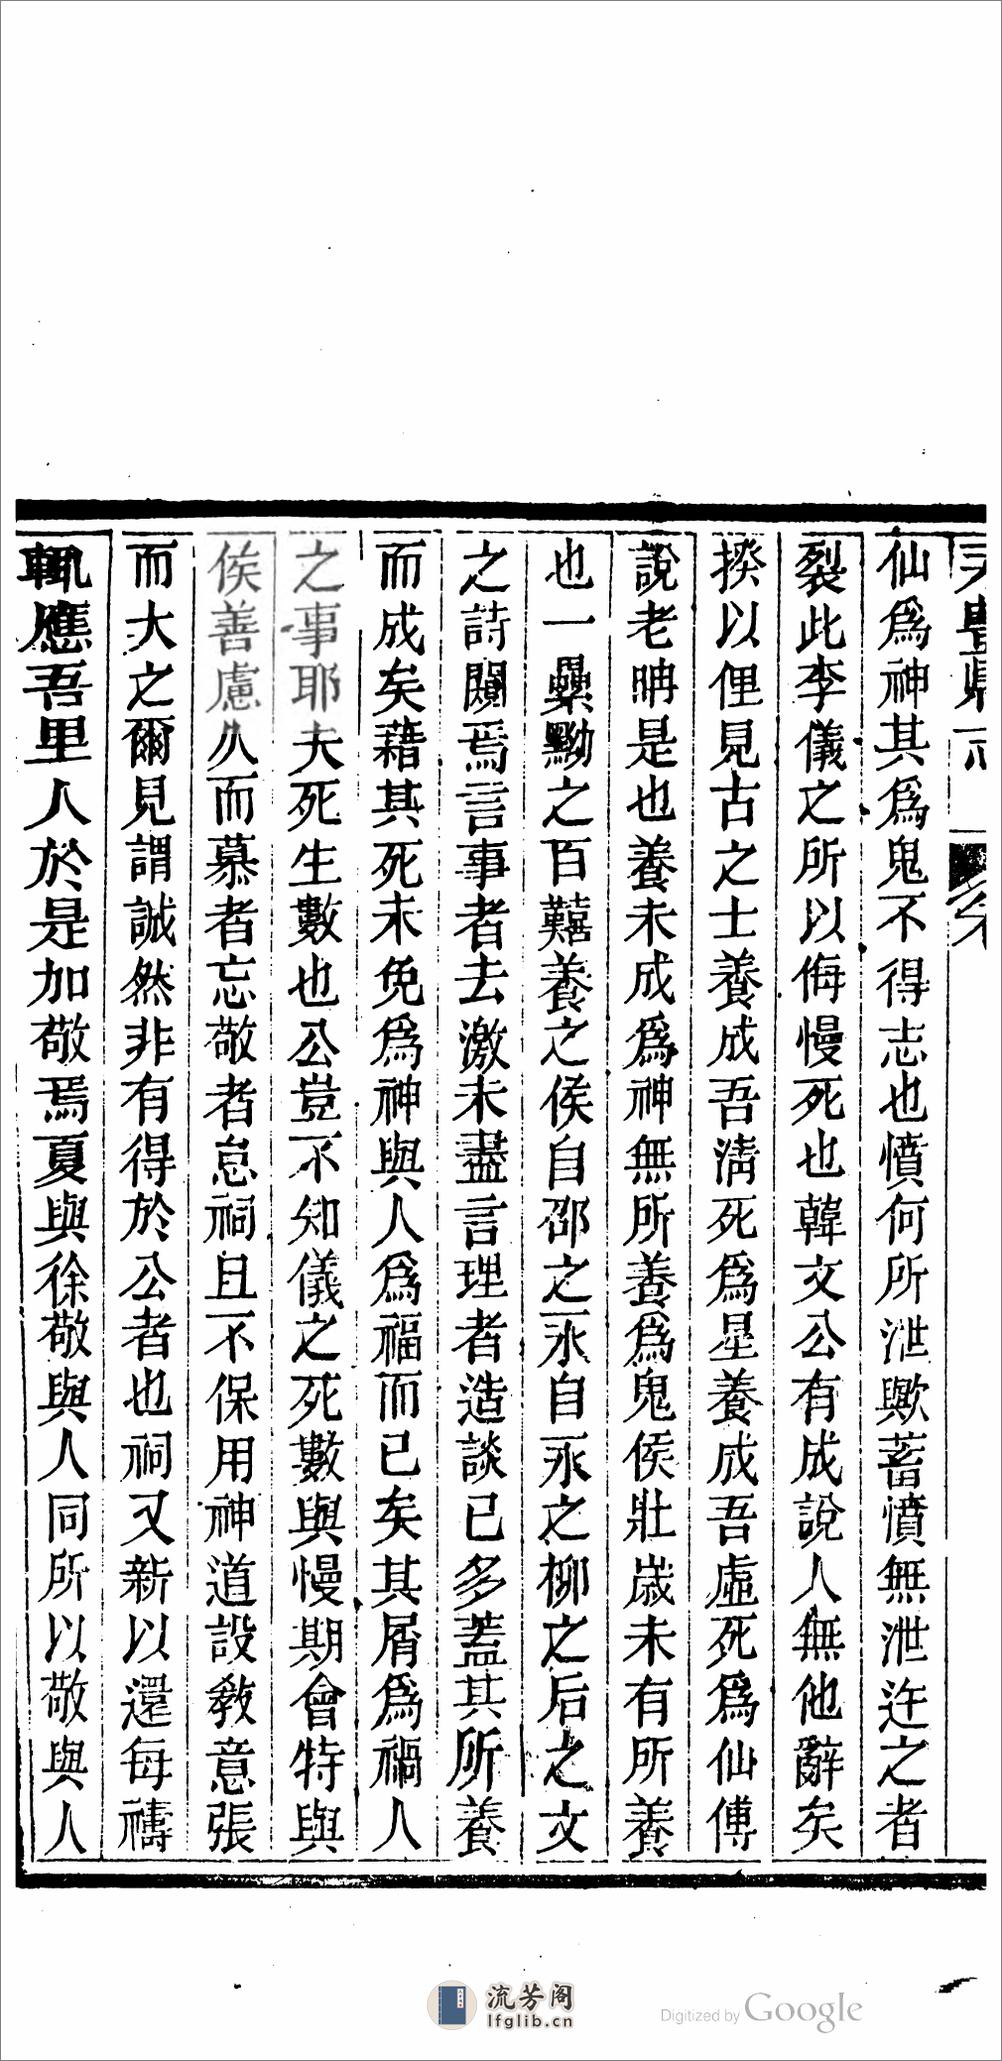 仙爲神其爲鬼不得志也憤何所泄歟蓄憤無泄迕之者
裂此李儀之所以侮慢死也韓文公有成說人無他辭矣
揆以俚見古之士養成吾淸死爲星養成吾虛死爲仙傅
說老聃是也養未成爲神無所養爲鬼侯壯歲未有所養
也一纍黝之百囏養之侯自邵之永自永之柳之后之文
之詩閟焉言事者去激未盡言理者造談已多蓋其所養
而成矣藉其死未免爲神與人爲福而已矣其屑爲禍人
之事耶夫死生數也公豈不知儀之死數與慢期會特與
侯善慮久而慕者忘敬者怠祠且不保用神道設敎意張
而大之爾見謂誠然非有得於公者也祠又新以還每禱
輒應吾里人於是加敬焉夏與徐敬與人同所以敬與人
流芳阁
lfglib.cn
Digitized by Google